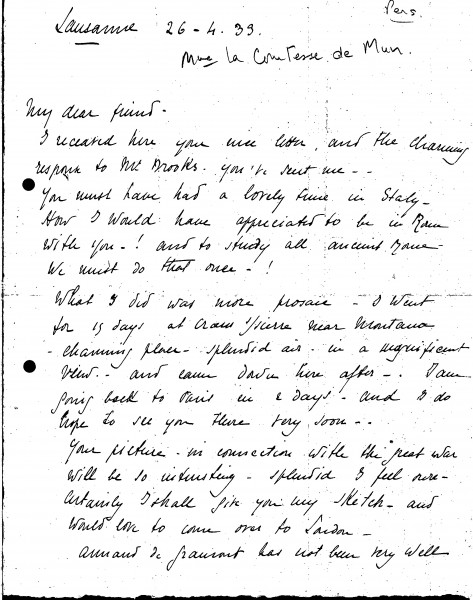 Pers.
Lausanne 26-4.39.
Mme la Comtesse de Mun.
My dear friend.
I received here your nice letter, and the charming
response to Mrs Brooks. you've sent me--
You must have had a lovely time in Italy-
How I would have appreciated to be in Rome
with you-! and to study all ancient Rome
We must do that once-!
What I did was more prosaic - I went
for 15 days at Crans s/Sierre near Montana
- charming place - splendid air - in a magnificent
view - and came down here after -. I am
going back to Paris in 2 days - and I do
hope to see you there very soon--
Your picture - in connection with the great war
will be so interesting - splendid I feel sure-
Certainly I shall give you my sketch - and
would love to come over to London -
Armand de Gramont has not been very well